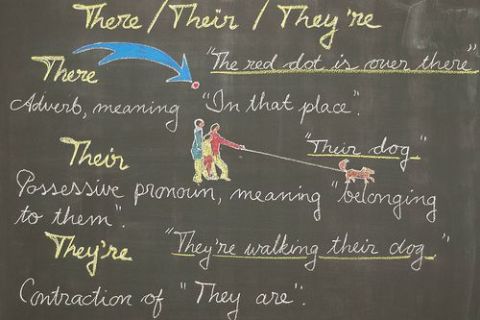 There / Their / They're
There "The red dot is over there"
Adverb, meaning "In that place".
Their "Their dog."
Possessive pronoun, meaning "belonging
to them".
They're "They're walking their dog."
Contraction of "They are".